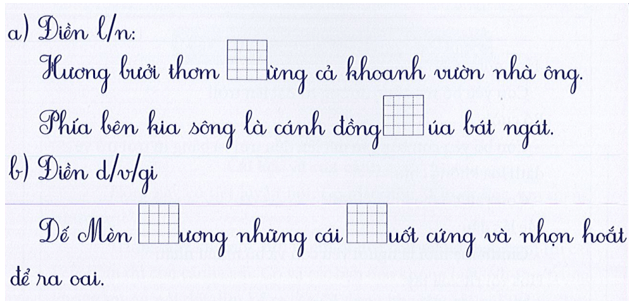 a) Điền l/n:
Hương bưởi thơm ừng cả khoanh vườn nhà ông.
Phía bên kia sông là cánh đồng úa bát ngát.
b) Điền d/v/gi
Dế Mèn ương những cái uốt cứng và nhọn hoắt
để ra oai.